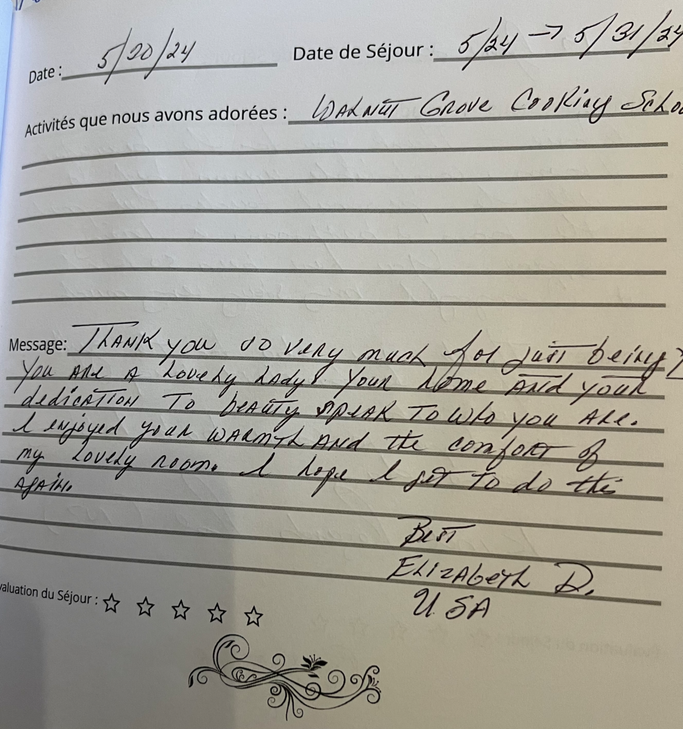 Date : 5/20/24 Date de Séjour : 5/24 → 5/31/24
Activités que nous avons adorées : Walnut Grove Cooking Scho
Message: Thank you so very much for just being
You are a lovely lady! Your home and your
dedication to beauty speak to who you are.
I enjoyed your warmth and the comfort of
my lovely room. I hope I get to do this
again.
Best
Elizabeth D.
USA
valuation du Séjour :